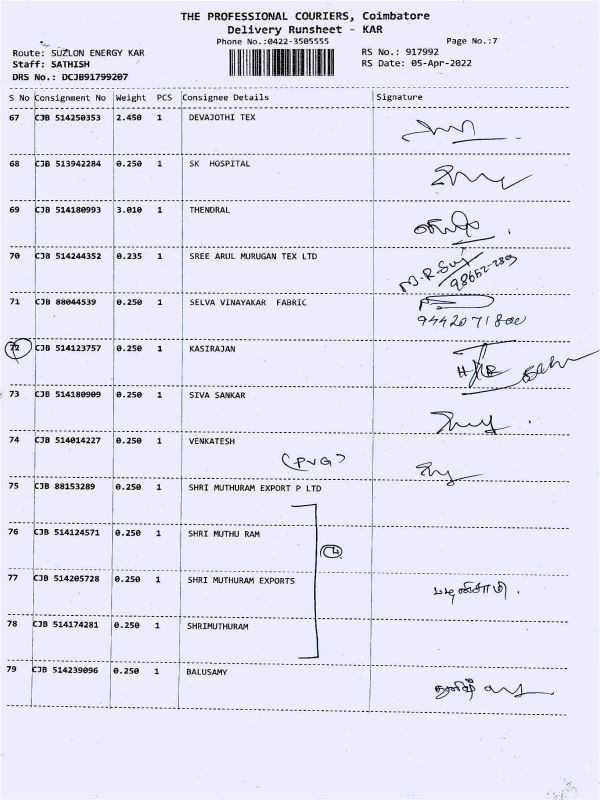 THE PROFESSIONAL COURIERS, Coimbatore
Delivery Runsheet - KAR
Phone No.:0422-3505555 Page No.:7
Route: SUZLON ENERGY KAR RS No.: 917992
Staff: SATHISH RS Date: 05-Apr-2022
DRS No.: DCJB91799207
S No Consignment No Weight PCS Consignee Details Signature
67 CJB 514250353 2.450 1 DEVAJOTHI TEX
68 CJB 513942284 0.250 1 SK HOSPITAL
69 CJB 514180993 3.010 1 THENDRAL
70 CJB 514244352 0.235 1 SREE ARUL MURUGAN TEX LTD
71 CJB 88044539 0.250 1 SELVA VINAYAKAR FABRIC
72 CJB 514123757 0.250 1 KASIRAJAN
73 CJB 514180909 0.250 1 SIVA SANKAR
74 CJB 514014227 0.250 1 VENKATESH
(PVG)
75 CJB 88153289 0.250 1 SHRI MUTHURAM EXPORT P LTD
76 CJB 514124571 0.250 1 SHRI MUTHU RAM
4
77 CJB 514205728 0.250 1 SHRI MUTHURAM EXPORTS
78 CJB 514174281 0.250 1 SHRIMUTHURAM
79 CJB 514239096 0.250 1 BALUSAMY